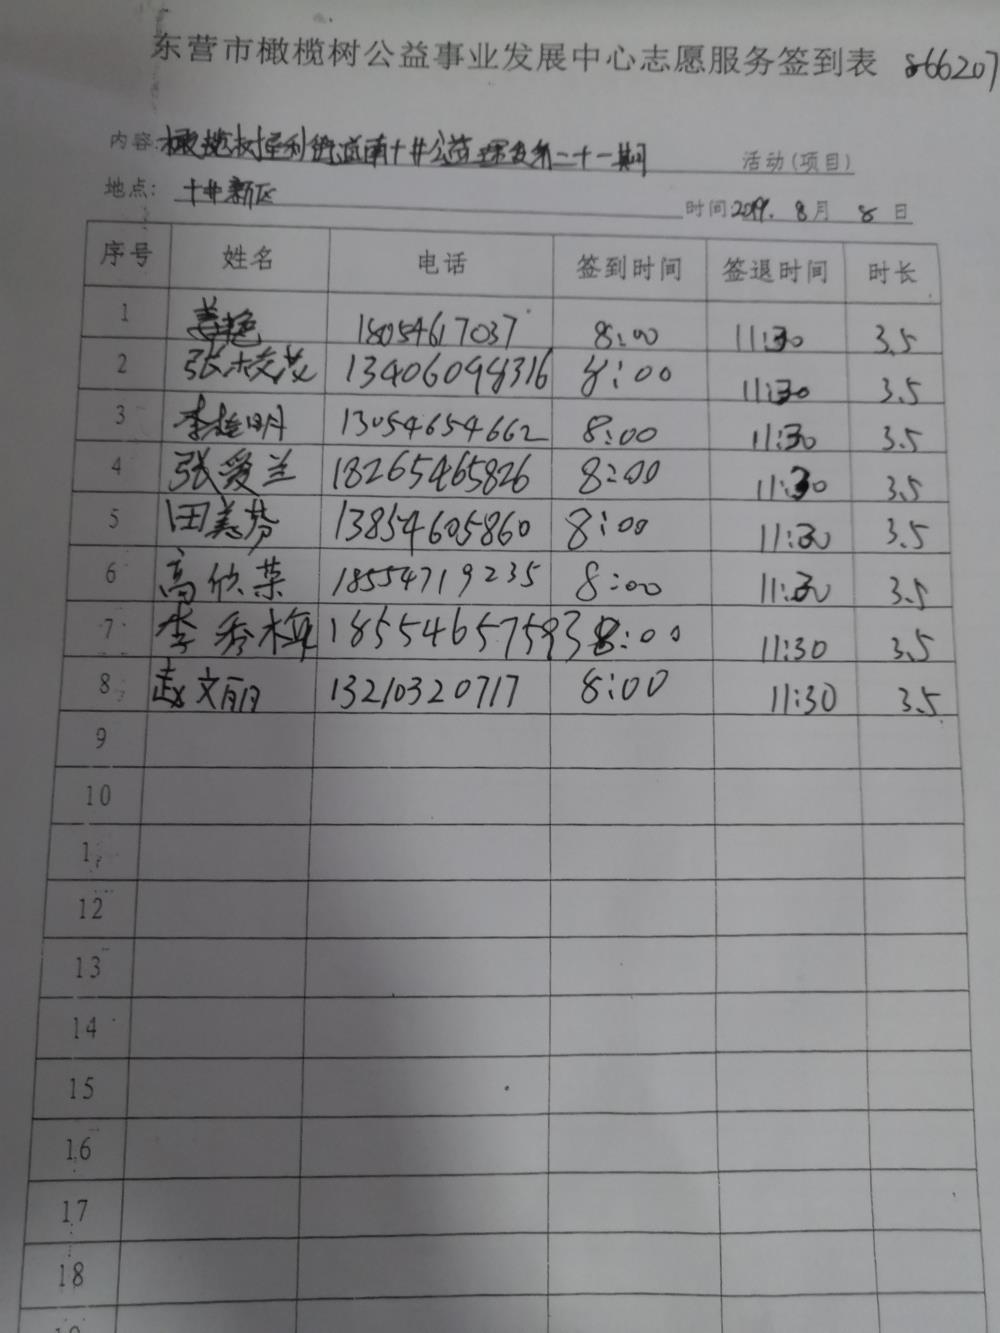 东营市橄榄树公益事业发展中心志愿服务签到表 866207
内容:橄榄树垦利街道南十井公益理发第二十一期 活动(项目)
地点: 十井新区 时间:2019. 8月 8日
序号 姓名 电话 签到时间 签退时间 时长
1 姜艳 18054617037 8:00 11:30 3.5
2 张 13406098316 8:00 11:30 3.5
3 李桂明 13054654662 8:00 11:30 3.5
4 张爱兰 18265465826 8:00 11:30 3.5
5 田美芬 13854605860 8:00 11:30 3.5
6 高欣荣 18554719235 8:00 11:30 3.5
7 李秀梅 18554657593 8:00 11:30 3.5
8 赵文丽 13210320717 8:00 11:30 3.5
9
10
1
12
13
14
15
16
17
18